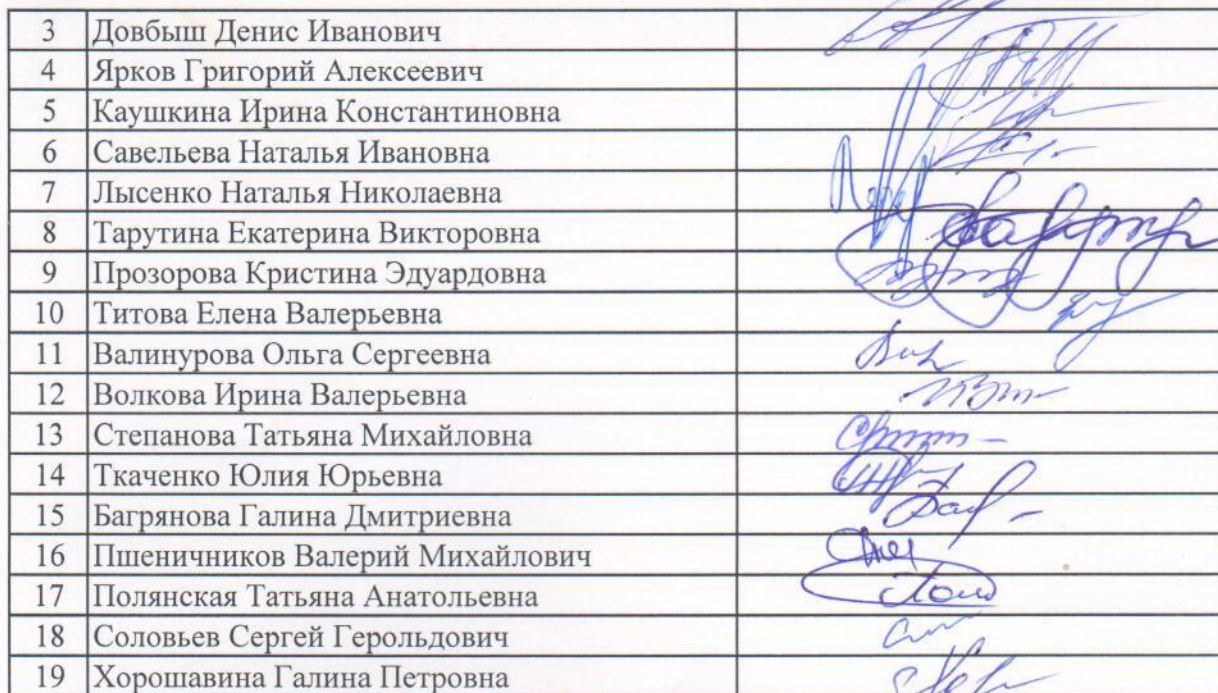 3 Довбыш Денис Иванович
4 Ярков Григорий Алексеевич
5 Каушкина Ирина Константиновна
6 Савельева Наталья Ивановна
7 Лысенко Наталья Николаевна
8 Тарутина Екатерина Викторовна
9 Прозорова Кристина Эдуардовна
10 Титова Елена Валерьевна
11 Валинурова Ольга Сергеевна
12 Волкова Ирина Валерьевна
13 Степанова Татьяна Михайловна
14 Ткаченко Юлия Юрьевна
15 Багрянова Галина Дмитриевна
16 Пшеничников Валерий Михайлович
17 Полянская Татьяна Анатольевна
18 Соловьев Сергей Герольдович
19 Хорошавина Галина Петровна